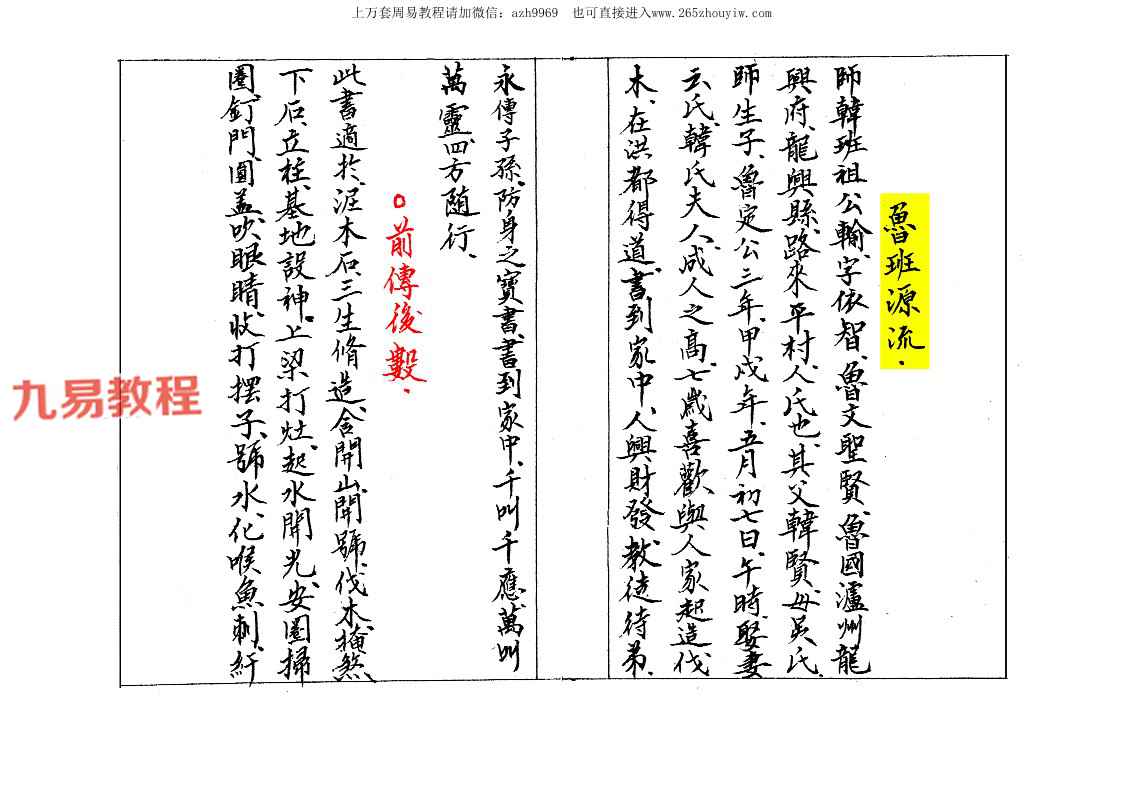 上万套周易教程请加微信：azh9969　也可直接进入www.265zhouyiw.com
魯班源流．
師韓班祖公輸、字依智、魯文聖賢、魯國瀘州龍
興府、龍興縣、路來平村、人氏也、其父韓賢、母吴氏、
師生子、魯定公三年、甲戌年、五月初七日、午時、娶妻
云氏、韓氏夫人、成人之高、七歲喜歡、與人家起造、伐
木、在洪都得道、書到家中、人興財發、教徒待弟、
永傳子孫、防身之寶書、書到家中、千叫千應、萬叫
萬靈、四方隨行、
○前傳後數．
此書適於、泥木石、三生脩造、舍開山、開號、伐木、掩煞
下石、立柱、基地設神、上梁打灶、起水開光、安圈掃
圈、釘門、圓盖、吹眼睛、收打擺子、號水、化喉魚刺、紆
九易教程